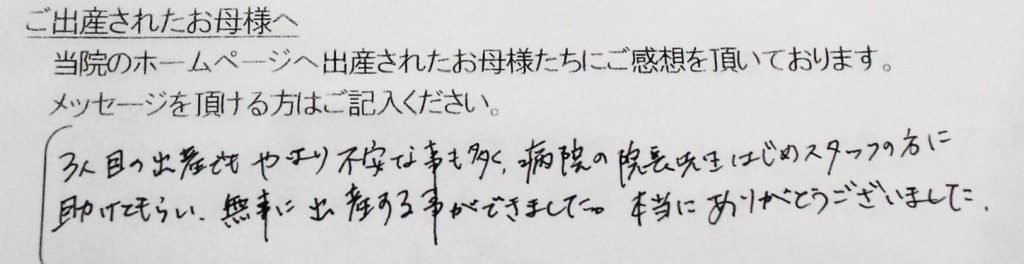 ご出産されたお母様へ
当院のホームページへ出産されたお母様たちにご感想を頂いております。
メッセージを頂ける方はご記入ください。
3人目の出産でも やはり 不安な事も多く、病院の院長先生はじめスタッフの方に
助けてもらい、無事に出産する事ができました。本当にありがとうございました。